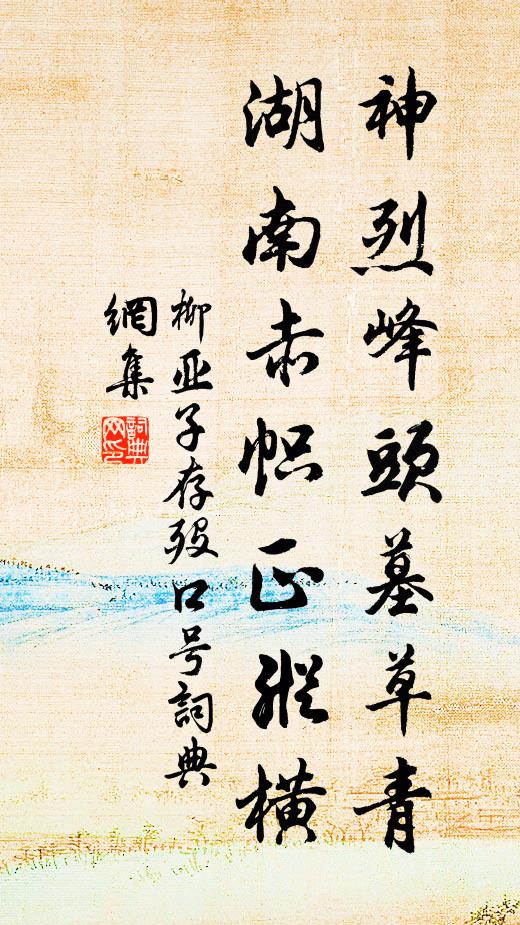 神烈峰頭墓草青
湖南赤帜正縱橫
柳亚子存殁口号詞典
網集
詞典
网印